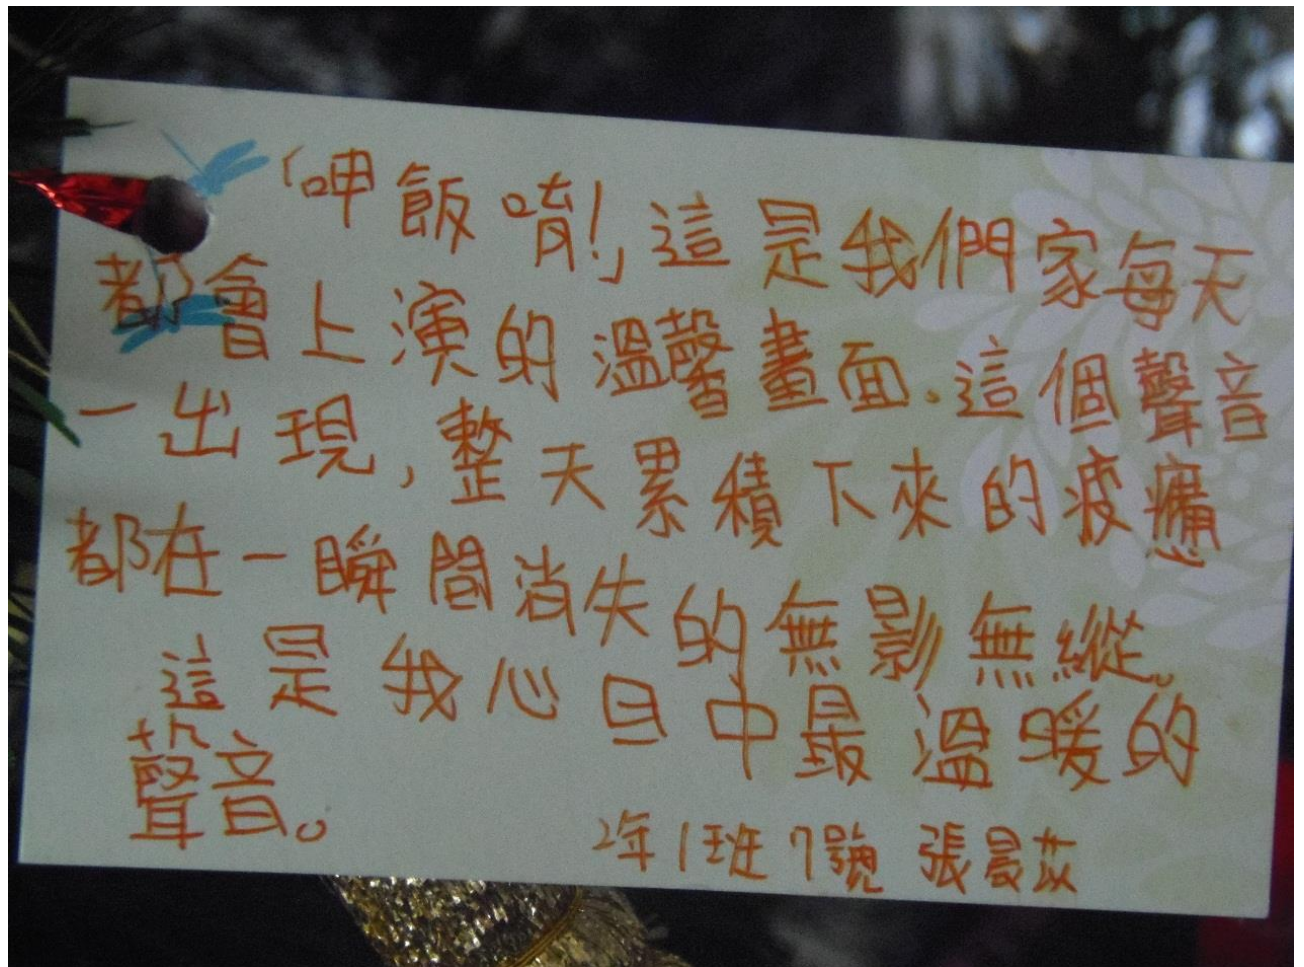 「呷飯唷!」這是我們家每天
都會上演的溫馨畫面.這個聲音
一出現,整天累積下來的疲憊
都在一瞬間消失的無影無縱。
這是我心目中最溫暖的
聲音。
2年1班7號 張晏苡